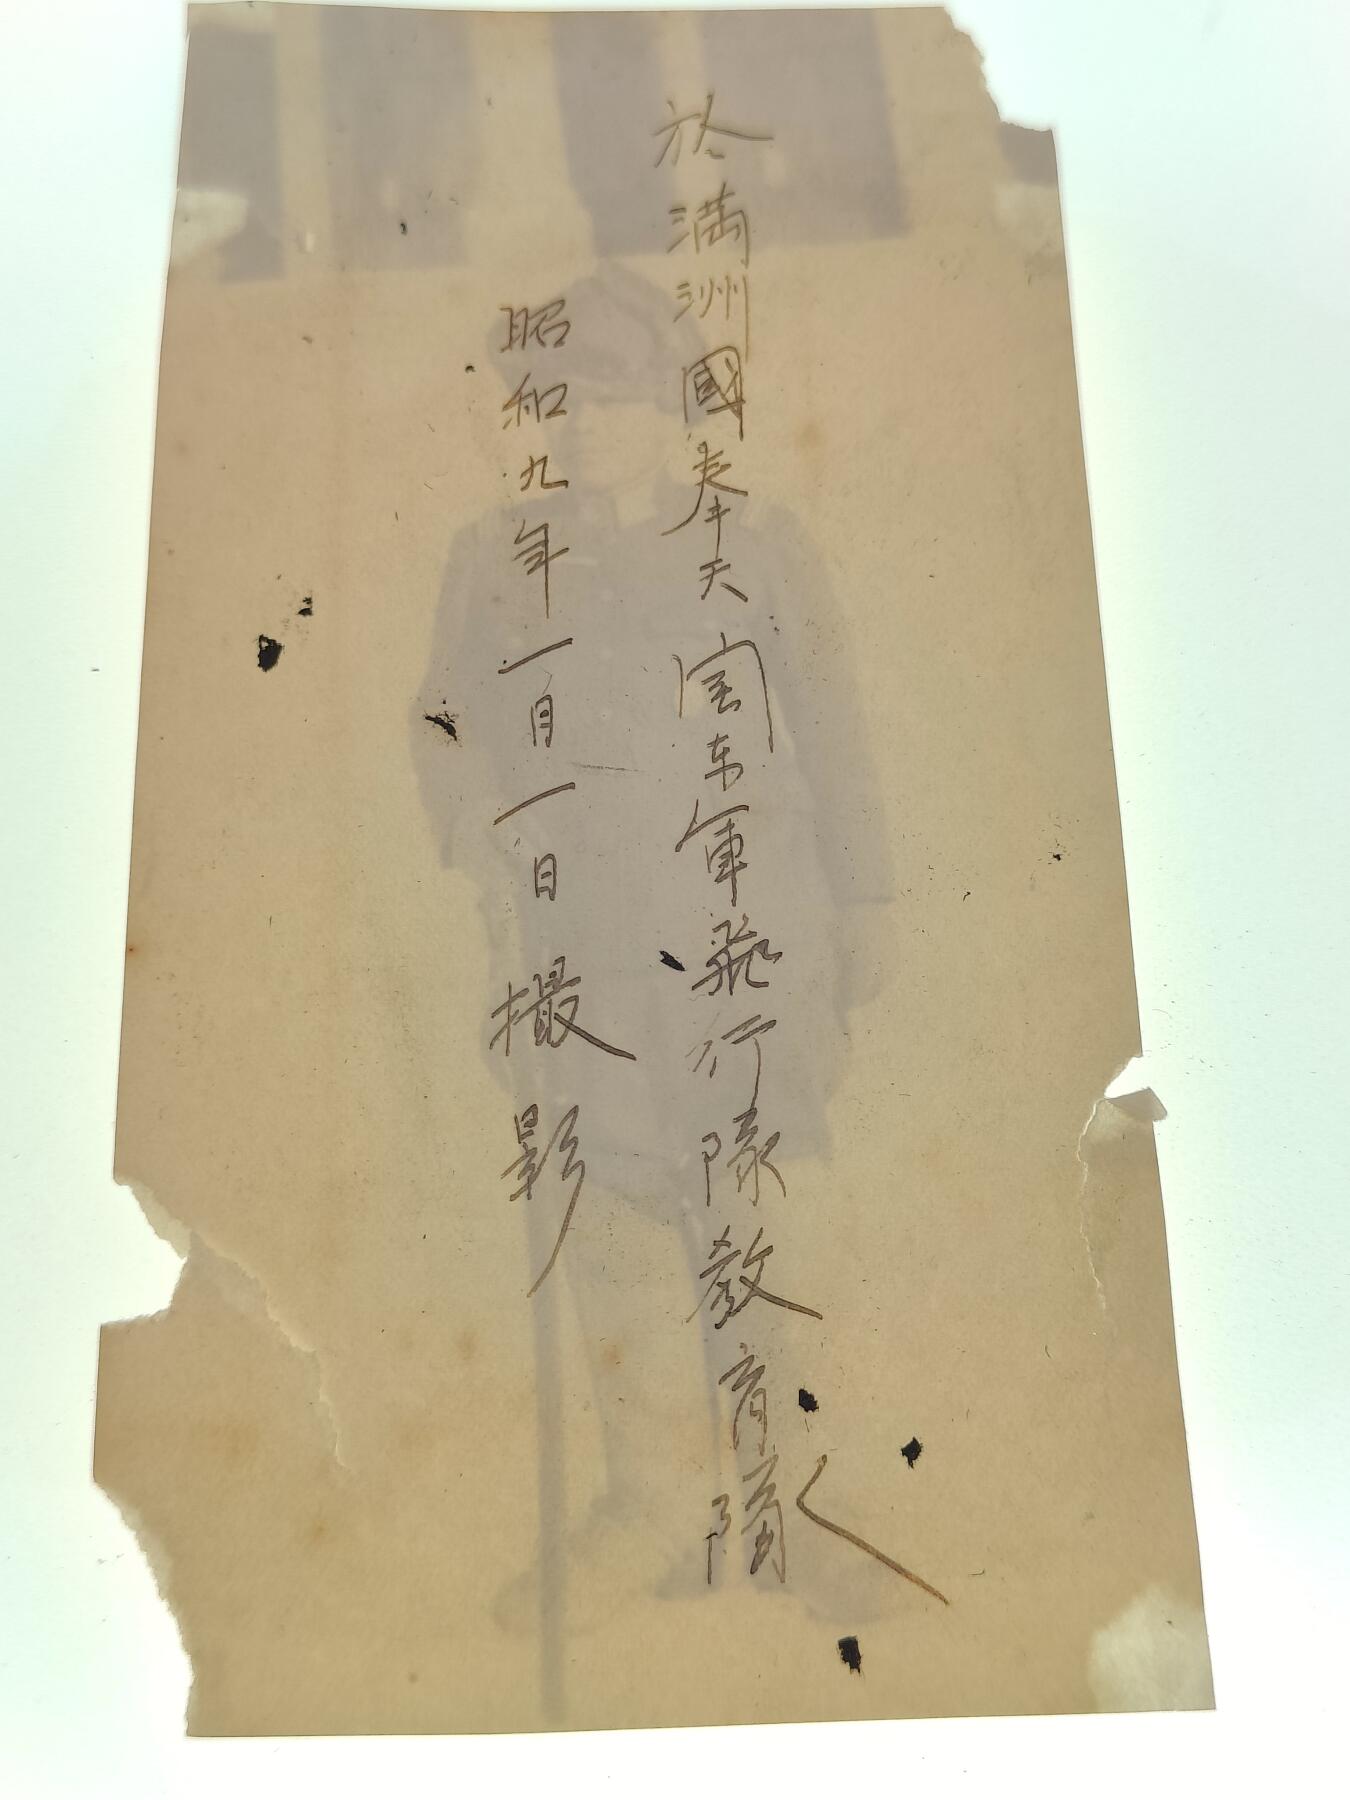 於満洲國奉天関东軍飛行隊教育隊
昭和九年一月一日撮影